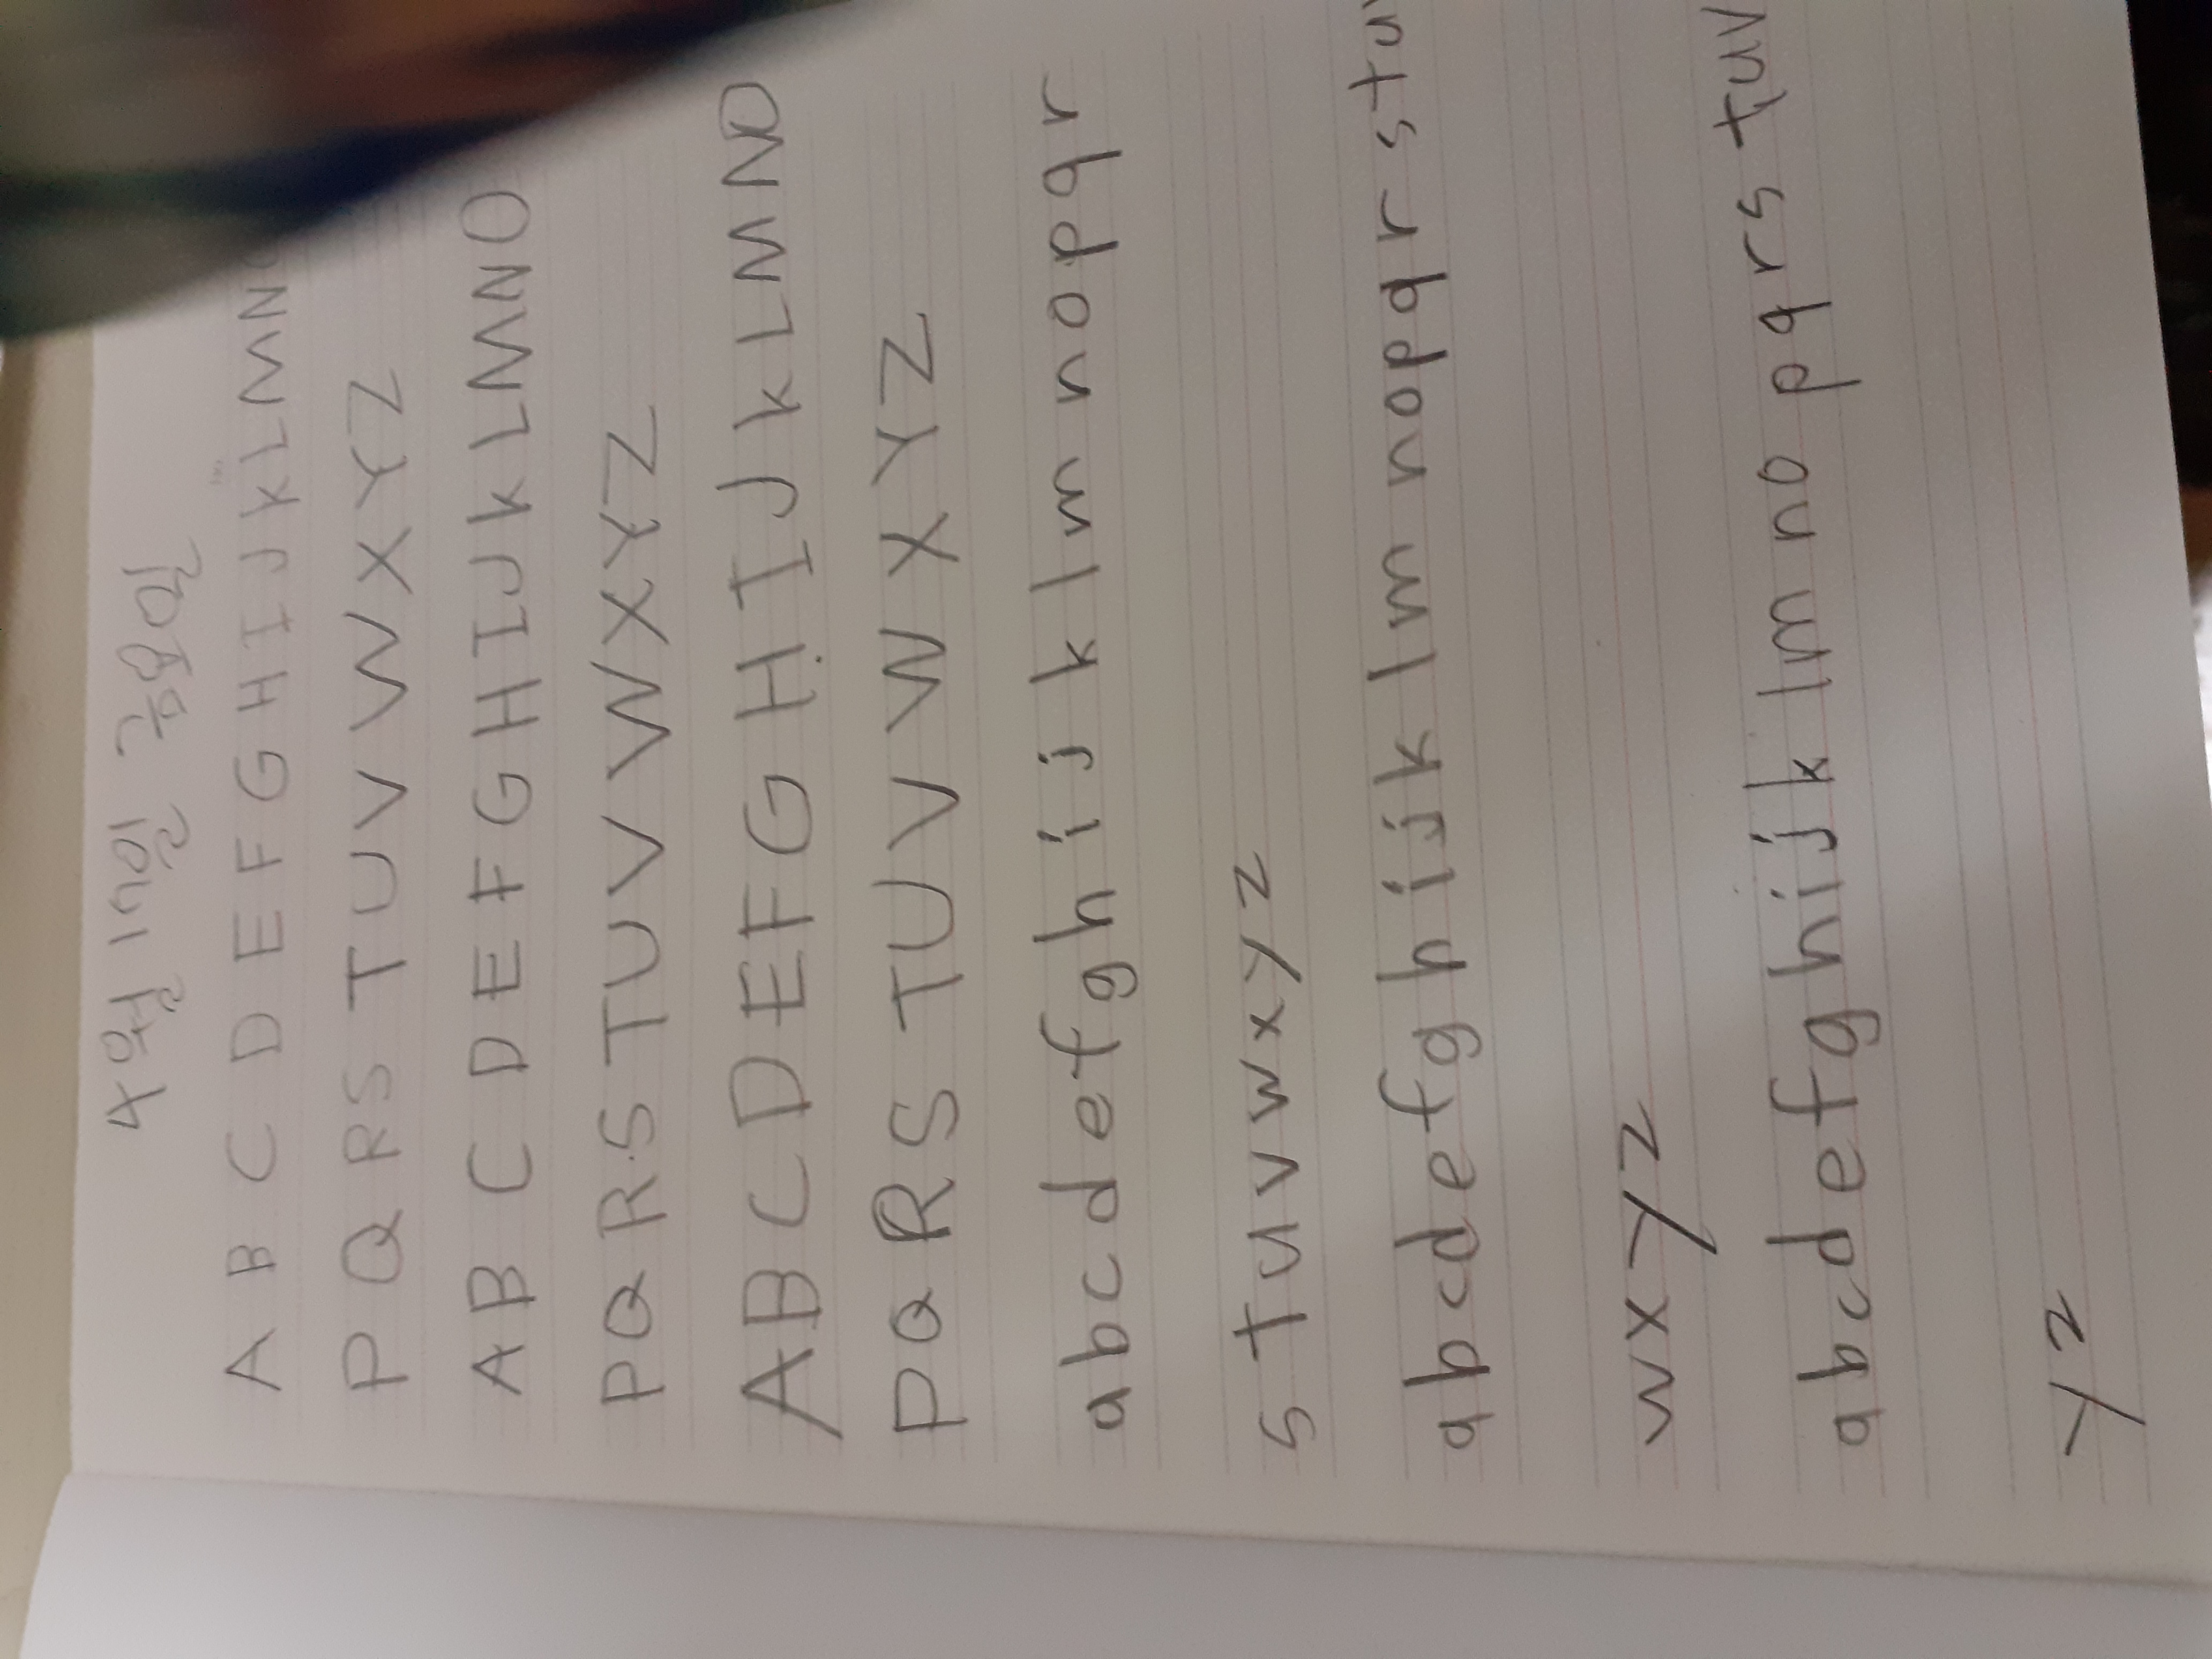 4월 17일 금요일
A B C D E F G H I J K L M N
P Q R S T U V W X Y Z
A B C D E F G H I J K L M N O
P Q R S T U V W X Y Z
A B C D E F G H I J K L M N O
P Q R S T U V W X Y Z
a b c d e f g h i j k l m n o p q r
s t u v w x y z
a b c d e f g h i j k l m n o p q r s t u
w x y z
a b c d e f g h i j k l m n o p q r s t u v
y z